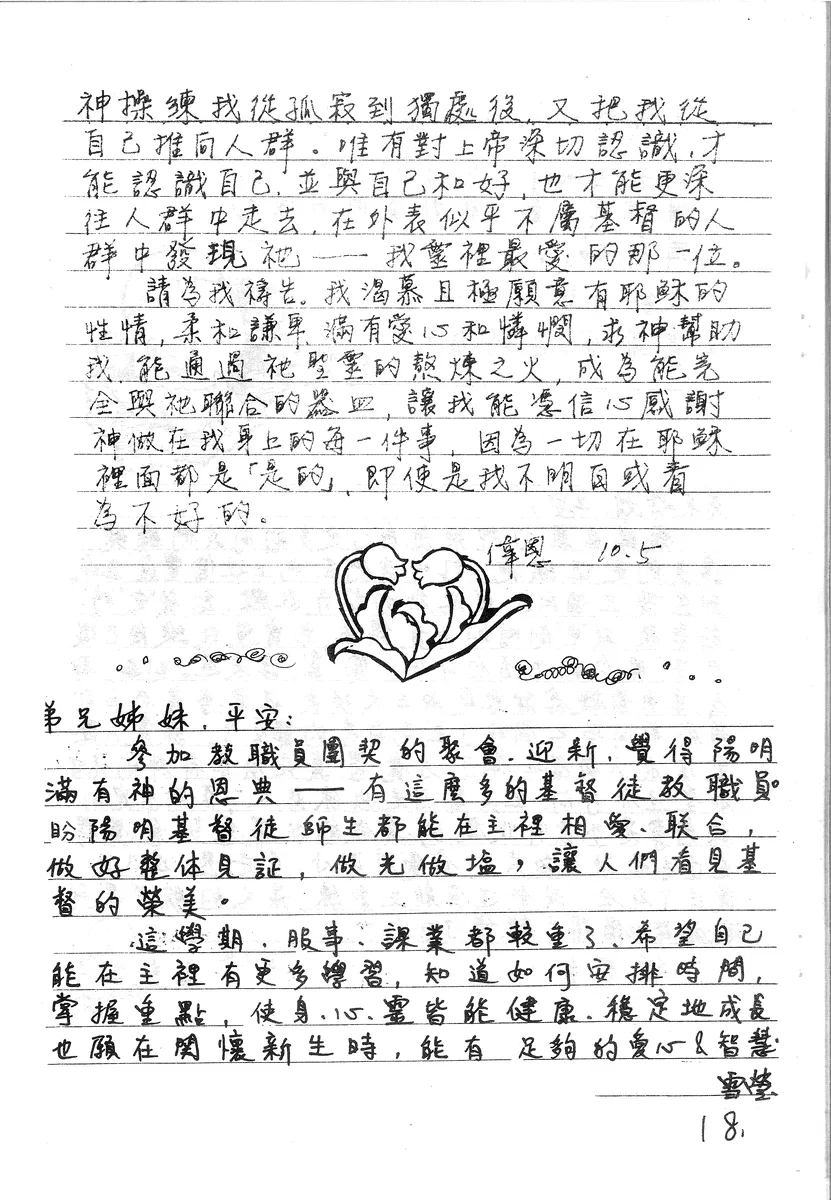 神操練我從孤寂到獨處後，又把我從
自己推向人群。唯有對上帝深切認識，才
能認識自己，並與自己和好，也才能更深
往人群中走去，在外表似乎不屬基督的人
群中發現祂——我靈裡最愛的那一位。
請為我禱告。我渴慕且極願意有耶穌的
性情，柔和謙卑，滿有愛心和憐憫，求神幫助
我，能通過祂聖靈的熬煉之火，成為能完
全與祂聯合的器皿，讓我能憑信心感謝
神做在我身上的每一件事，因為一切在耶穌
裡面都是「是的」，即使是我不明白或看
為不好的。
偉恩 10.5
弟兄姊妹，平安：
參加教職員團契的聚會、迎新，覺得陽明
滿有神的恩典——有這麼多的基督徒教職員。
盼陽明基督徒師生都能在主裡相愛、联合，
做好整体見証，做光做塩，讓人們看見基
督的榮美。
這學期、服事、課業都較重了、希望自己
能在主裡有更多學習，知道如何安排時間，
掌握重點，使身、心、靈皆能健康、穩定地成長
也願在関懷新生時，能有足夠的愛心&智慧
雪瑩
18.